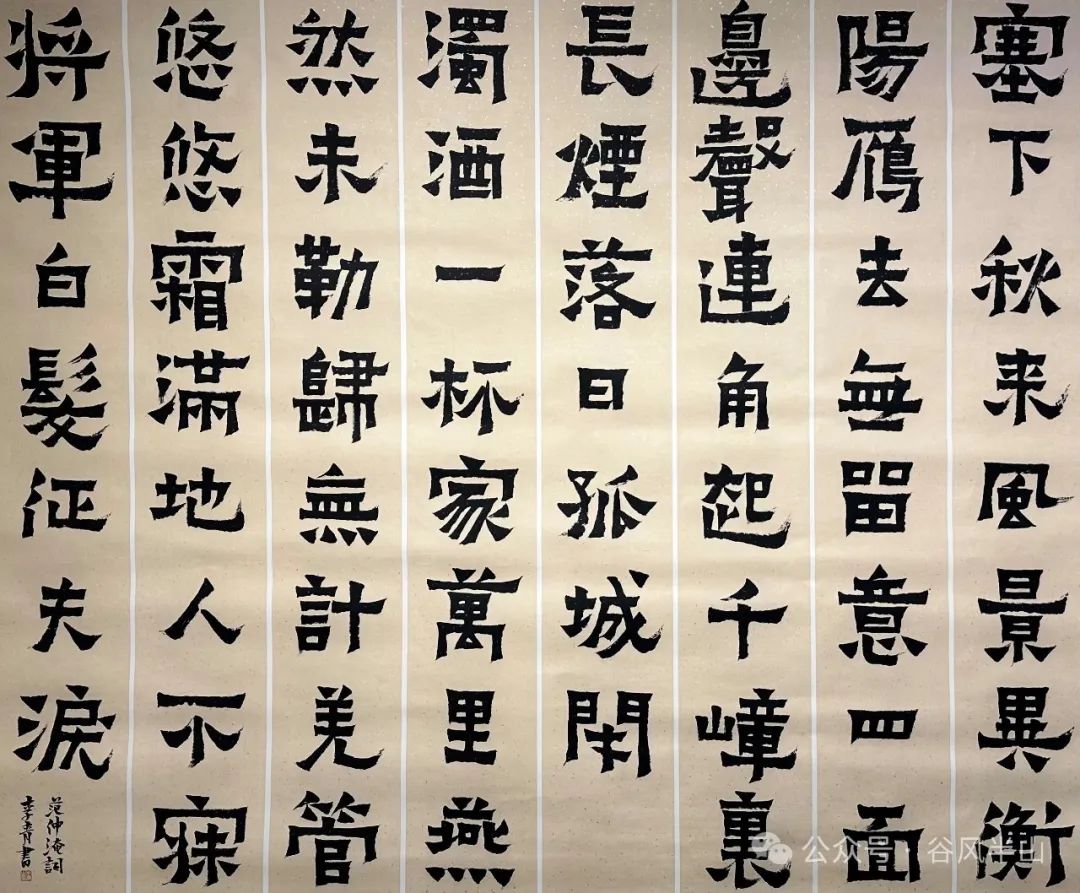 塞下秋来風景異衡
陽鴈去無畱意四面
邊聲連角起千嶂裏
長煙落日孤城閉
濁酒一杯家萬里燕
然未勒歸無計羌管
悠悠霜滿地人不寐
将軍白髮征夫淚
范仲淹詞
李青書
公众号·谷风半山